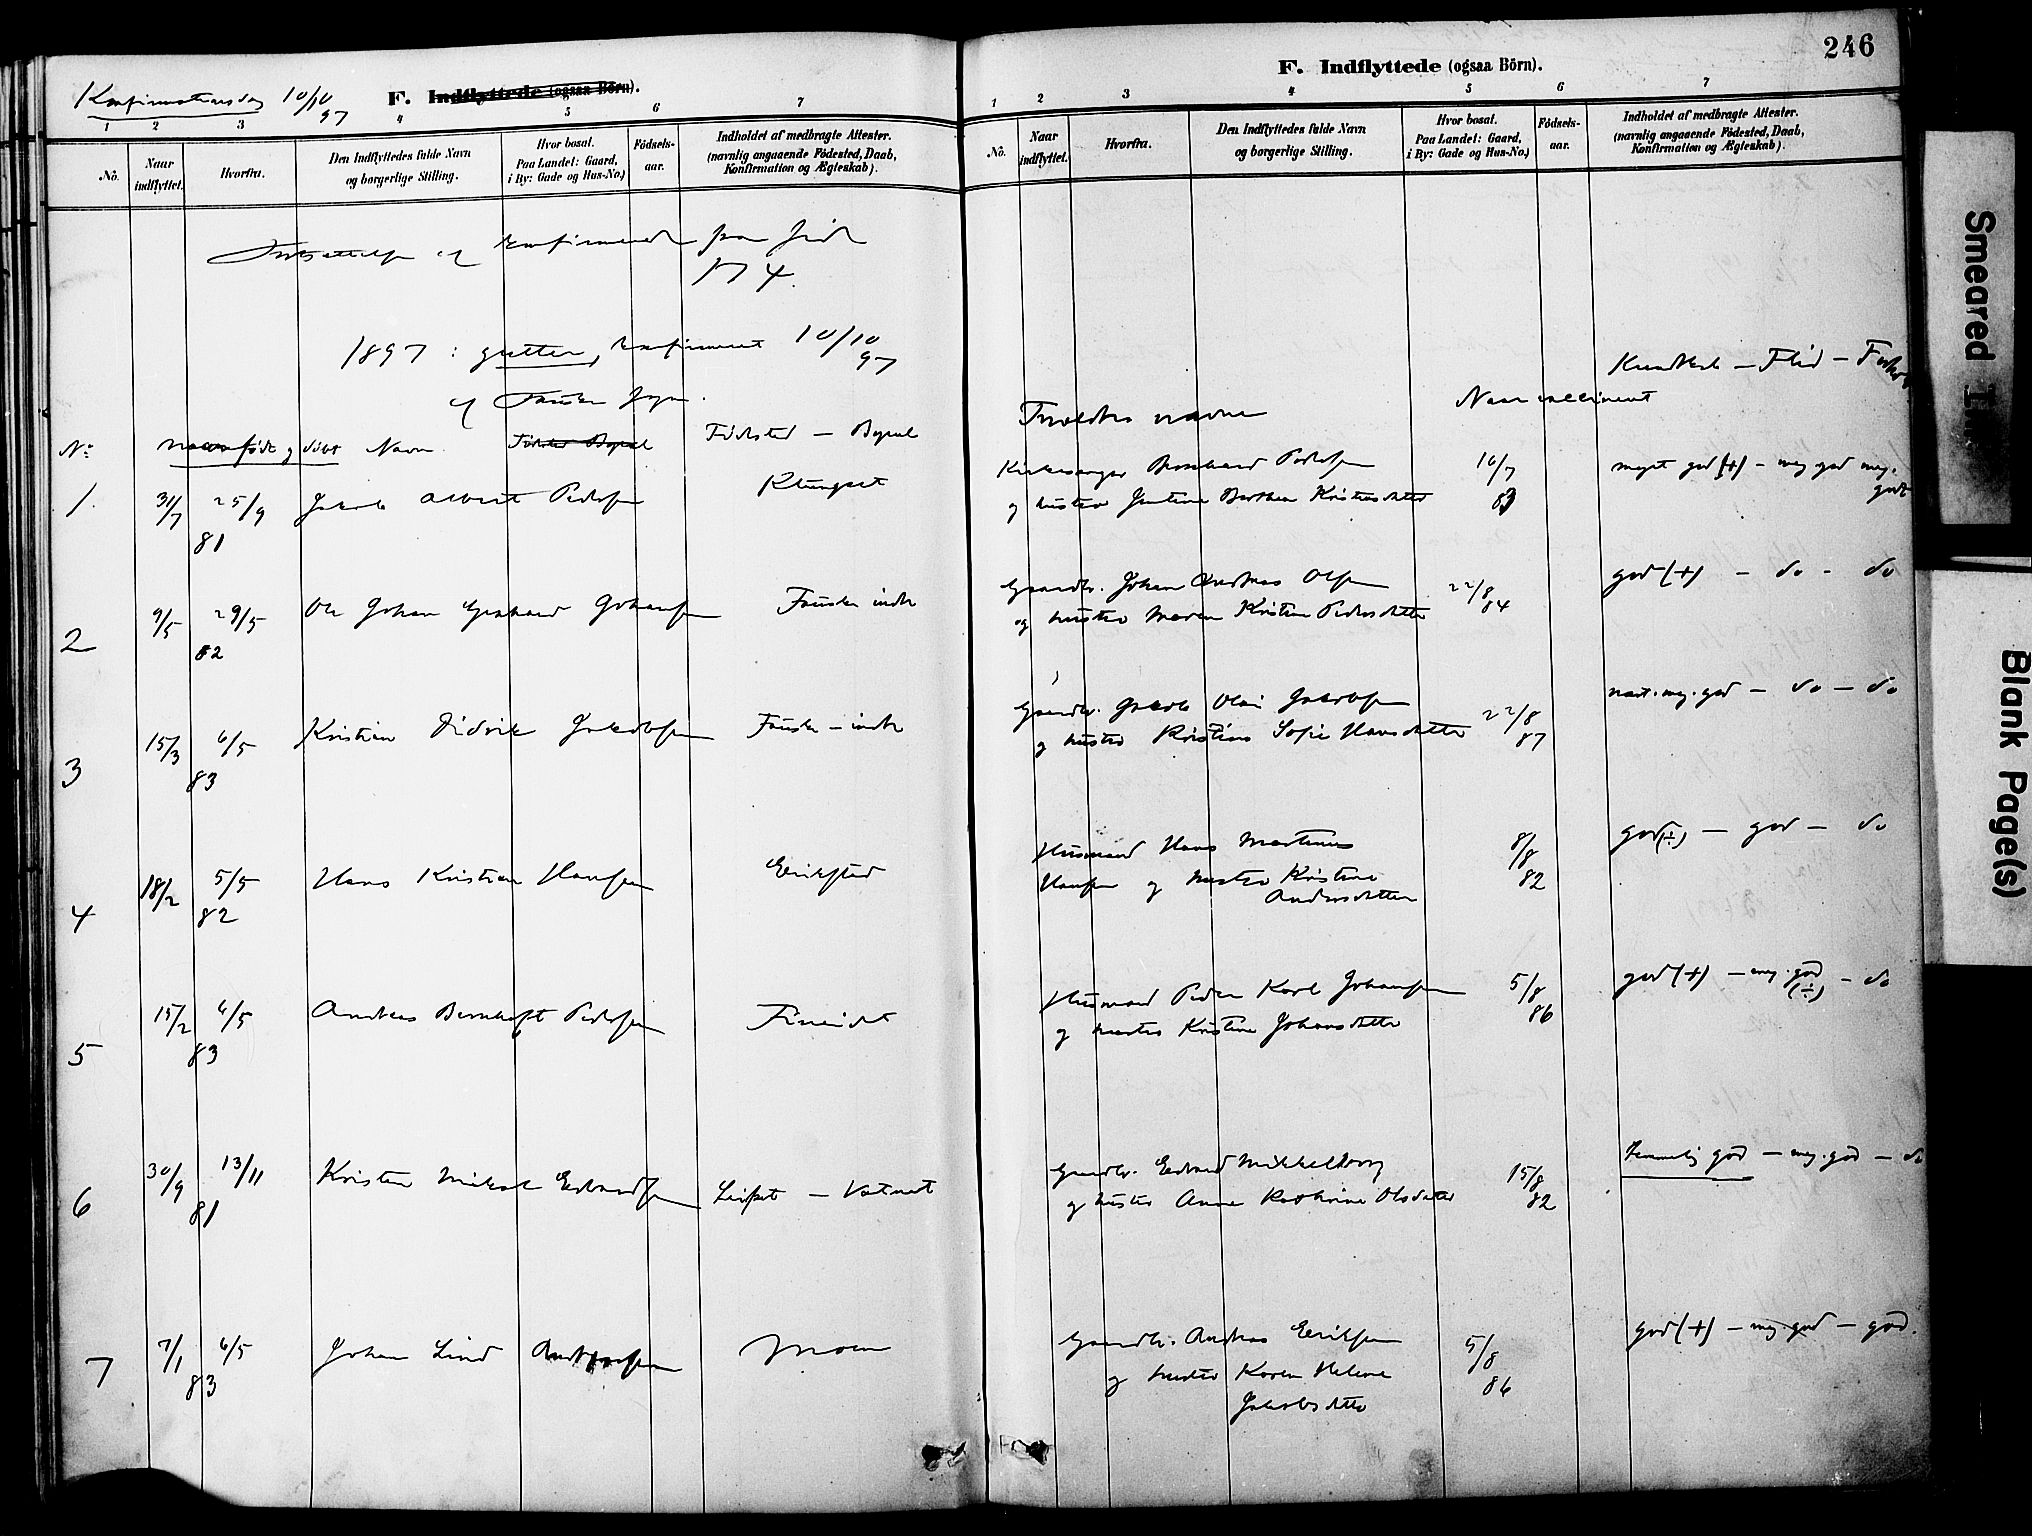 246
Konfirmationsdag 10/10 97
F. Indflyttede (ogsaa Börn).
1 2 3 4 5 6 7
No.
Naar indflyttet.
Hvorfra.
Den Indflyttedes fulde Navn og borgerlige Stilling.
Hvor bosat. Paa Landet: Gaard, i By: Gade og Hus-No.)
Födsels-aar.
Indholdet af medbragte Attester. (navnlig angaaende Födested, Daab, Konfirmation og Ægteskab).
Fortsættelse af konfirmerede fra side
174.
1897: gutter, konfirmeret 10/10 97
af Fauske sogn.
No født og døbt Navn Fødested — Bopæl
1. 31/7 25/9 81 Jakob Albert Pedersen Klungset
2 9/5 29/5 82 Ole Johan Gerhard Johansen Fauske indre
3 15/3 6/5 83 Kristian Didrik Jakobsen Fauske – indre
4 18/2 5/5 82 Hans Kristian Hansen Erikstad
5 15/2 6/5 83 Andreas Bernhoft Pedersen Fineidet
6 30/9 13/11 81 Kristen Mikal Edvardsen Leifset – Vatnet
7 7/1 6/5 83 Johan Lind Andreassen Moen
F. Indflyttede (ogsaa Börn).
1 2 3 4 5 6 7
No.
Naar indflyttet.
Hvorfra.
Den Indflyttedes fulde Navn og borgerlige Stilling.
Hvor bosat. Paa Landet: Gaard, i By: Gade og Hus-No.)
Födsels-aar.
Indholdet af medbragte Attester. (navnlig angaaende Födested, Daab, Konfirmation og Ægteskab).
Kundskab — Flid — Forhold
Forældres navne Naar vaccineret
Kirkesanger Bernhard Pedersen 16/7 83 meget god (+) – meg. god meg. godt
og hustru Bertha Kristensdatter
Gaardbr. Johan Andreas Olsen 22/8 84 god (+) – do – do
og hustru Maren Kristine Pedersdatter
Gaardbr. Jakob Olai Jakobsen 22/8 87 næst. meg. god – do – do
og hustru Kristine Sofie Hansdatter
Husmand Hans Martinus 8/8 82 god (÷) – god – do
Hansen og hustru Kristine
Andersdatter
Husmand Peder Karl Johansen 5/8 86 god (+) – meg. god (÷) – do
og hustru Kristine Johansdatter
Gaardbr. Edvard Mikkelborg 15/8 82 temmelig god – meg. god – do
og hustru Anne Kathrine Olsdatter
Gaardbr. Andreas Eriksen 5/8 86 god (+) – meg. god – god.
og hustru Karen Helene
Jakobsdatter
Smeared Ink
Blank Page(s)